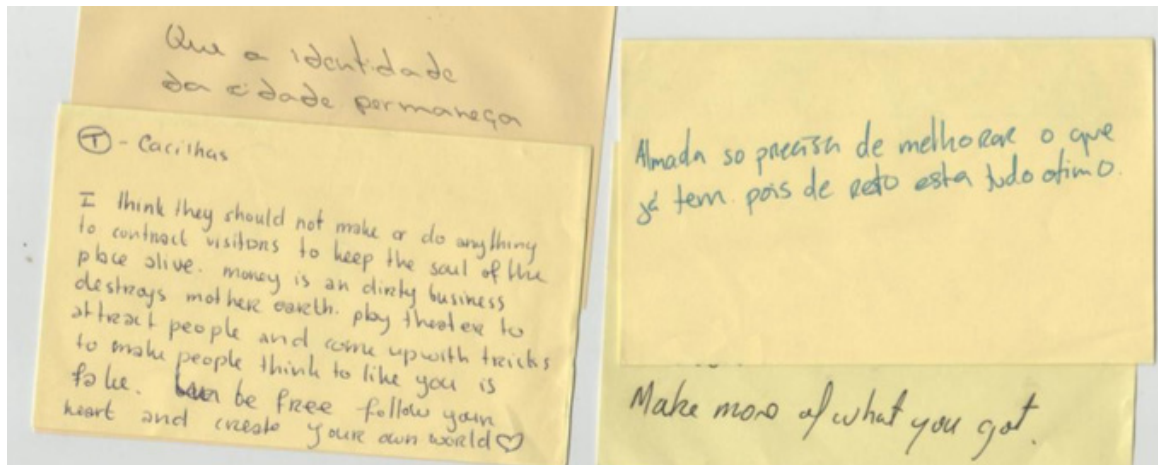 Que a identidade
da cidade permaneça
T - Cacilhas
I think they should not make or do anything
to contract visitors to keep the soul of the
place alive. money is an dirty business
destroys mother earth. play theater to
attract people and come up with tricks
to make people think to like you is
fake. be free follow your
heart and create your own world ♡
Almada so precisa de melhorar o que
já tem. pois de resto esta tudo otimo.
Make more of what you got.